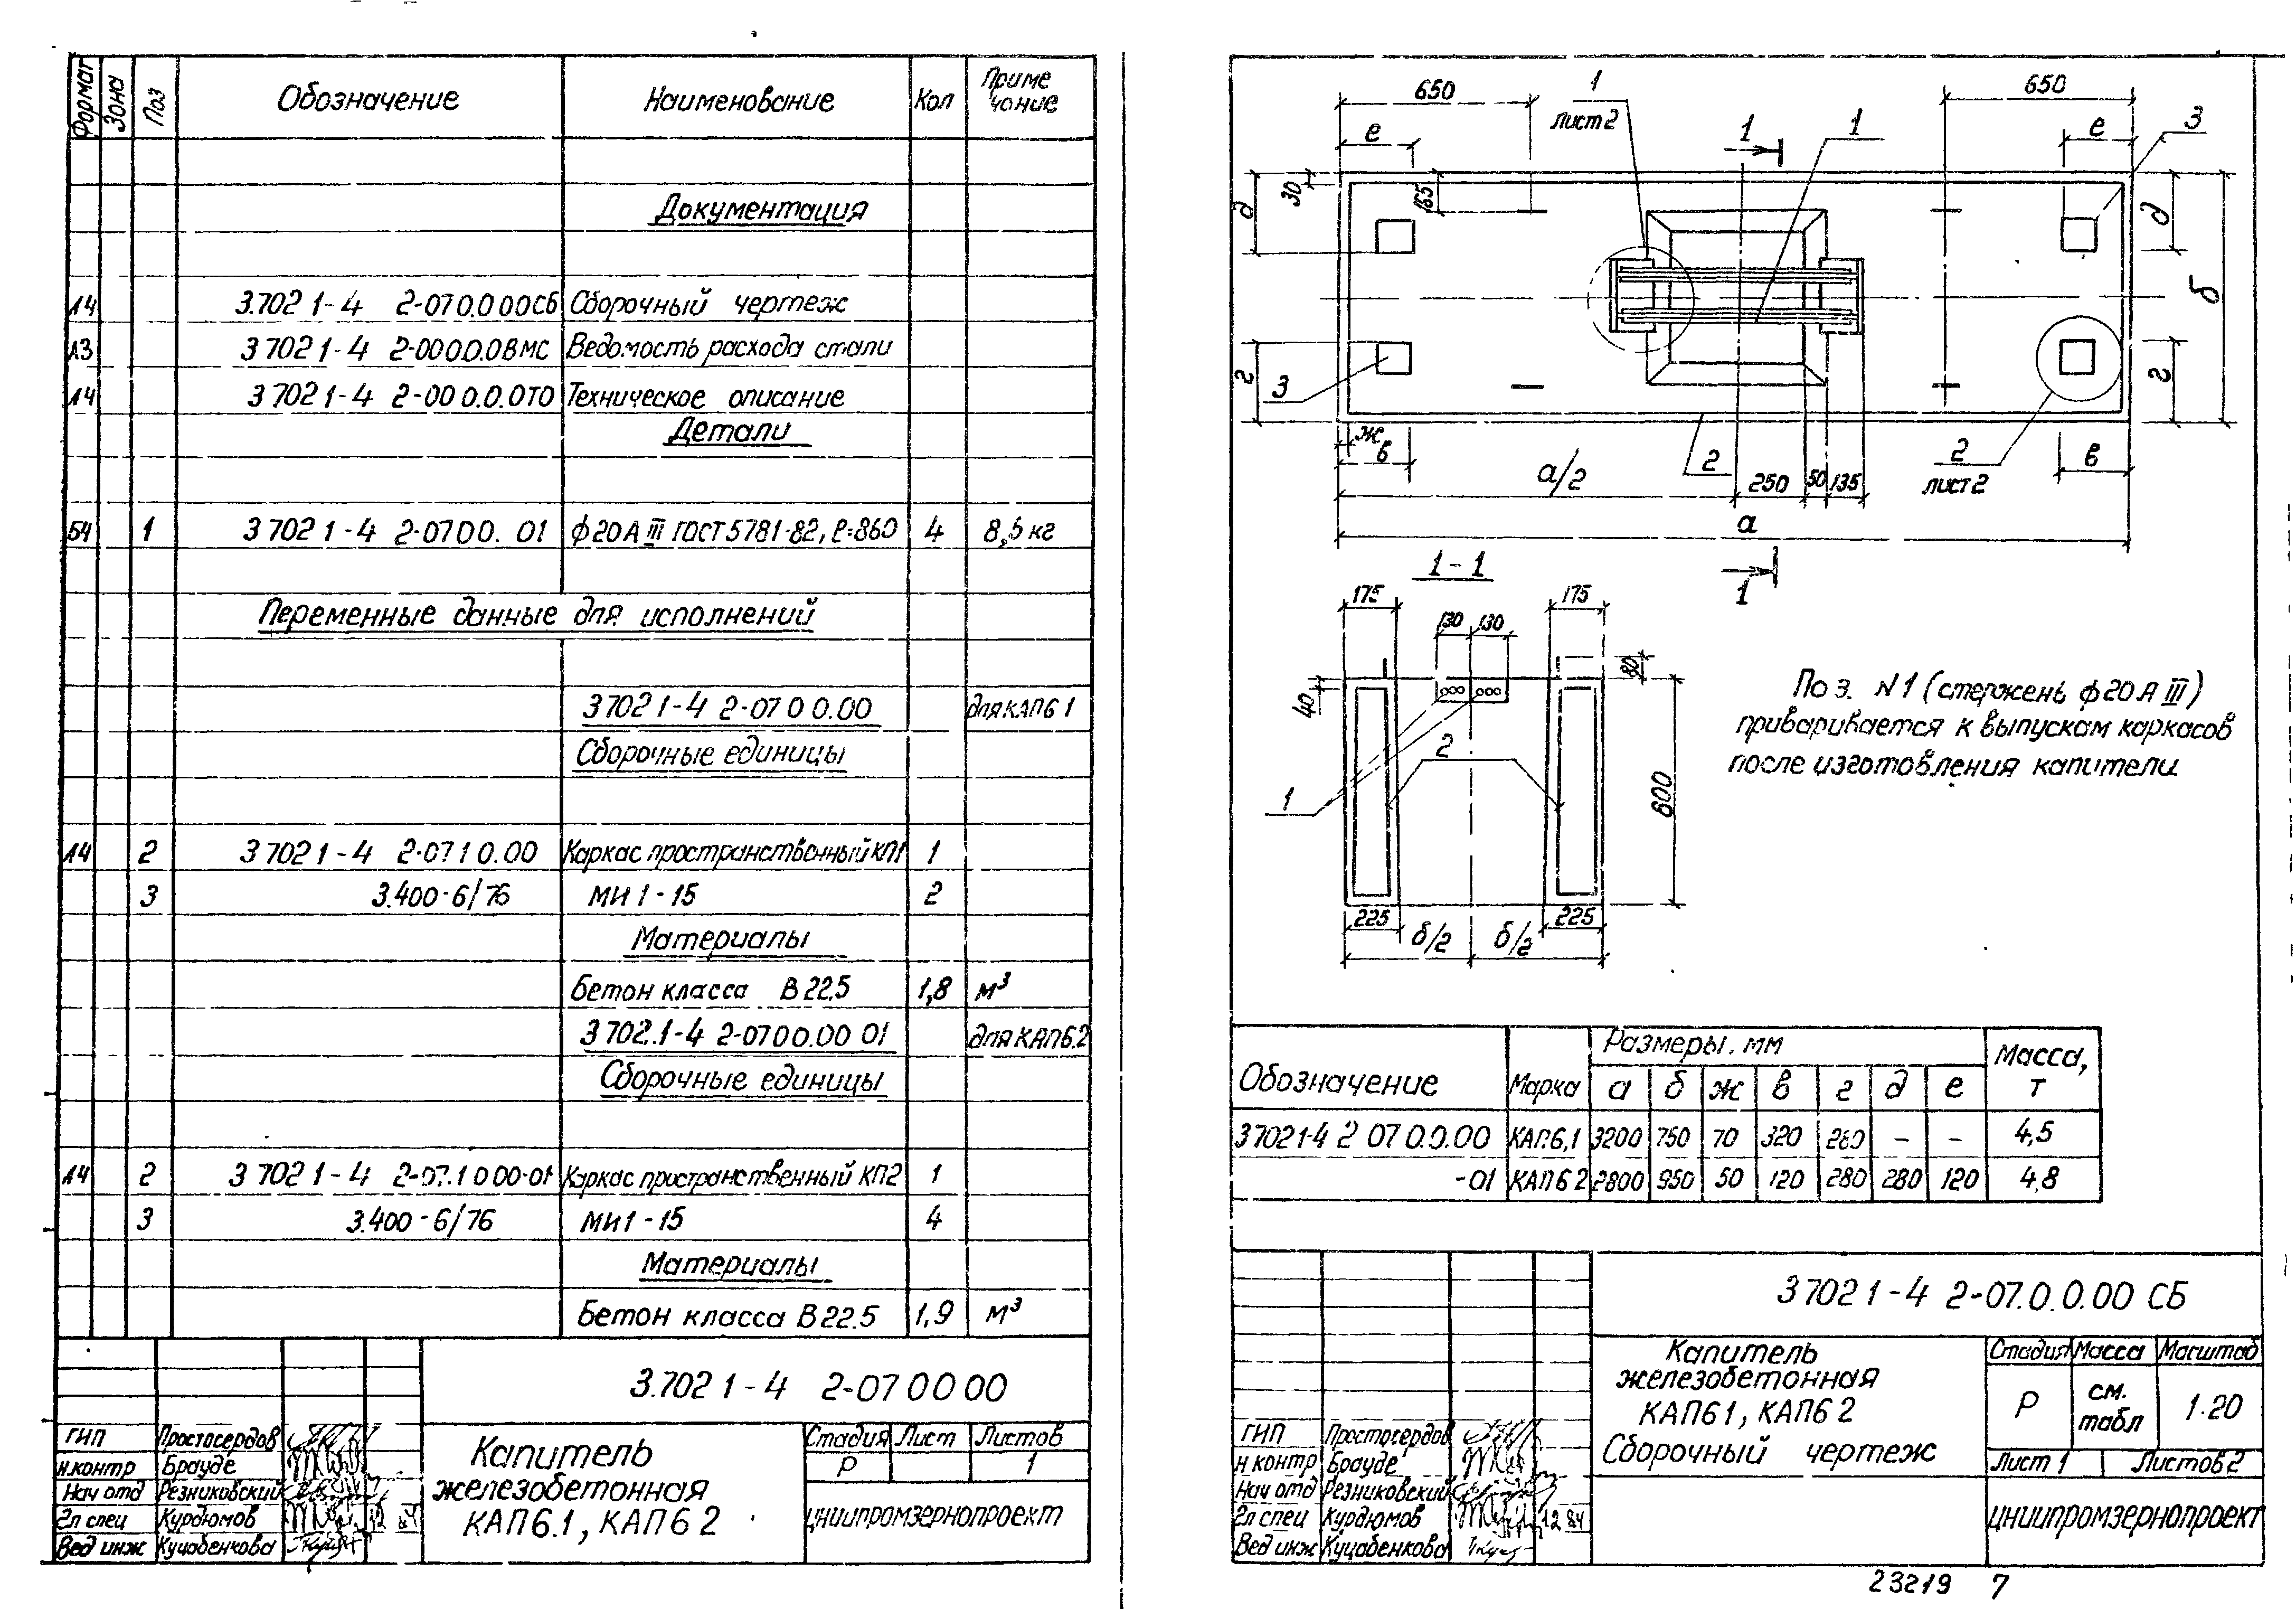 Формат Зона Поз Обозначение Наименование Кол Приме
чание
Документация
А4 3.702 1-4 2-07 0.0 00СБ Сборочный чертеж
А3 3 702 1-4 2-00 0.0.0ВМС Ведомость расхода стали
А4 3 702 1-4 2-00 0.0.0ТО Техническое описание
Детали
Б4 1 3 702 1-4 2-07 00. 01 ф20А III ГОСТ 5781-82, ℓ=860 4 8,5 кг
Переменные данные для исполнений
3 702 1-4 2-07 0 0.00 для КАП6 1
Сборочные единицы
А4 2 3 702 1-4 2-07 1 0.00 Каркас пространственный КП1 1
3 3.400-6/76 МИ 1-15 2
Материалы
Бетон класса В 22.5 1,8 м³
3 702.1-4 2-07 00.00 01 для КАП6.2
Сборочные единицы
А4 2 3 702 1-4 2-07.1 0 00-01 Каркас пространственный КП2 1
3 3.400-6/76 МИ1-15 4
Материалы
Бетон класса В 22.5 1,9 м³
3.702 1-4 2-07 00 00
ГИП Простосердов
н.контр Брауде
Нач отд Резниковский
Гл спец Курдюмов 12 84
Вед инж Куцабенкова
Капитель
железобетонная
КАП6.1, КАП6 2
Стадия Лист Листов
Р 1
ЦНИИПРОМЗЕРНОПРОЕКТ
650 1 650
лист 2 1 1 3
е е
д 30 165 д
б
г 3 г
ж
в 2 2 в
а/2 250 50 135 лист 2
а
1-1 1
175 175
130 130
80
40
2
1
600
225 225
б/2 б/2
Поз. N1 (стержень ф20А III)
приваривается к выпускам каркасов
после изготовления капители
Обозначение Марка Размеры. мм Масса,
т
а б ж в г д е
3702 1-4 2 07 0.0.00 КАП.6,1 3200 750 70 320 280 – – 4,5
-01 КАП6 2 2800 950 50 120 280 280 120 4,8
3 702 1-4 2-07.0.0.00 СБ
Капитель
железобетонная
КАП6 1, КАП6 2
Сборочный чертеж
Стадия Масса Масштаб
Р см.
табл 1.20
Лист 1 Листов 2
ЦНИИПРОМЗЕРНОПРОЕКТ
ГИП Простосердов
н контр Брауде
Нач отд Резниковский
Гл спец Курдюмов 12 84
Вед инж Куцабенкова
23219 7